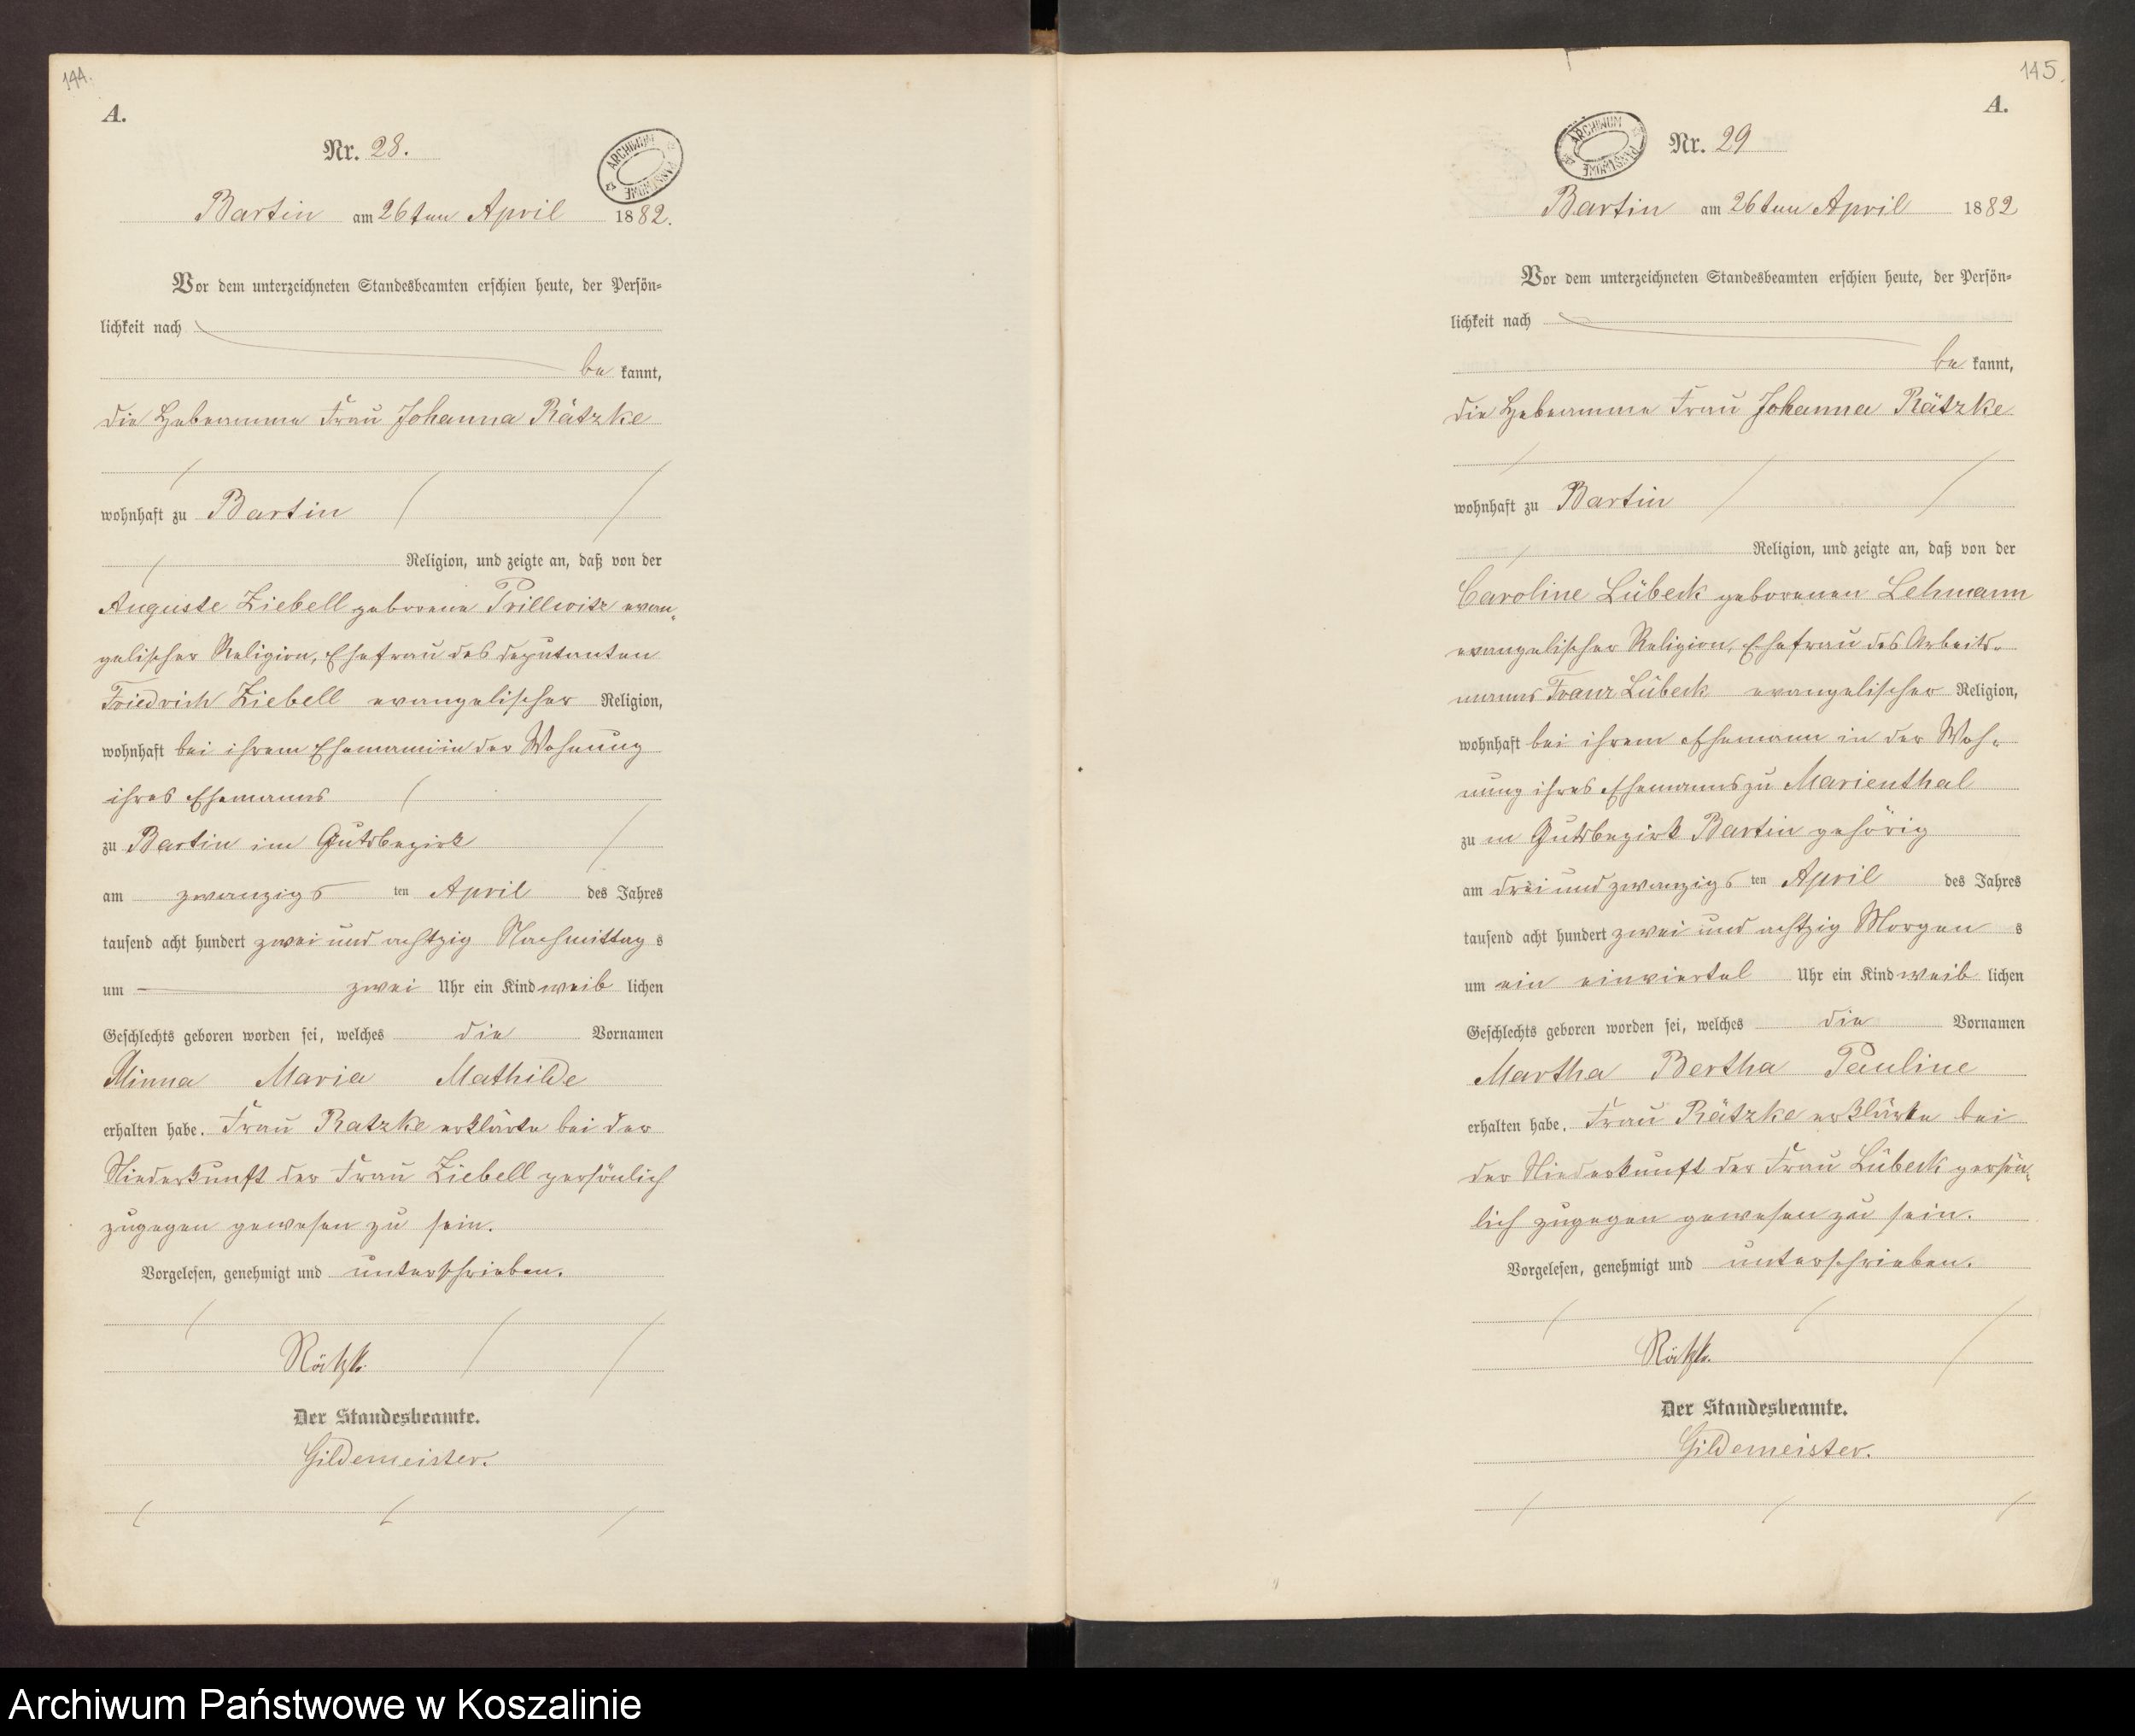 144.
A.
Nr. 28.
ARCHIWUM PAŃSTWOWE
Bartin am 26ten April 1882.
Vor dem unterzeichneten Standesbeamten erschien heute, der Persön-
lichkeit nach
be kannt,
die Hebeamme Frau Johanna Rätzke
wohnhaft zu Bartin
Religion, und zeigte an, daß von der
Auguste Ziebell geborene Prillwitz evan-
gelischer Religion, Ehefrau des Deputanten
Friedrich Ziebell evangelischer Religion,
wohnhaft bei ihrem Ehemann in der Wohnung
ihres Ehemanns
zu Bartin im Gutsbezirk
am zwanzigs ten April des Jahres
tausend acht hundert zwei und achtzig Nachmittag s
um zwei Uhr ein Kind weib lichen
Geschlechts geboren worden sei, welches die Vornamen
Minna Maria Mathilde
erhalten habe. Frau Ratzke erklärte bei der
Niederkunft der Frau Ziebell persönlich
zugegen gewesen zu sein.
Vorgelesen, genehmigt und unterschrieben.
Rätzke
Der Standesbeamte.
Gildemeister.
145.
A.
ARCHIWUM PAŃSTWOWE
Nr. 29
Bartin am 26ten April 1882
Vor dem unterzeichneten Standesbeamten erschien heute, der Persön-
lichkeit nach
be kannt,
die Hebeamme Frau Johanna Rätzke
wohnhaft zu Bartin
Religion, und zeigte an, daß von der
Caroline Lübeck geborenen Lehmann
evangelischer Religion, Ehefrau des Arbeits-
manns Franz Lübeck evangelischer Religion,
wohnhaft bei ihrem Ehemann in der Woh-
nung ihres Ehemanns zu Marienthal
zu m Gutsbezirk Bartin gehörig
am drei und zwanzigs ten April des Jahres
tausend acht hundert zwei und achtzig Morgen s
um ein einviertel Uhr ein Kind weib lichen
Geschlechts geboren worden sei, welches die Vornamen
Martha Bertha Pauline
erhalten habe. Frau Rätzke erklärte bei
der Niederkunft der Frau Lübeck persön-
lich zugegen gewesen zu sein.
Vorgelesen, genehmigt und unterschrieben.
Rätzke
Der Standesbeamte.
Gildemeister.
Archiwum Państwowe w Koszalinie